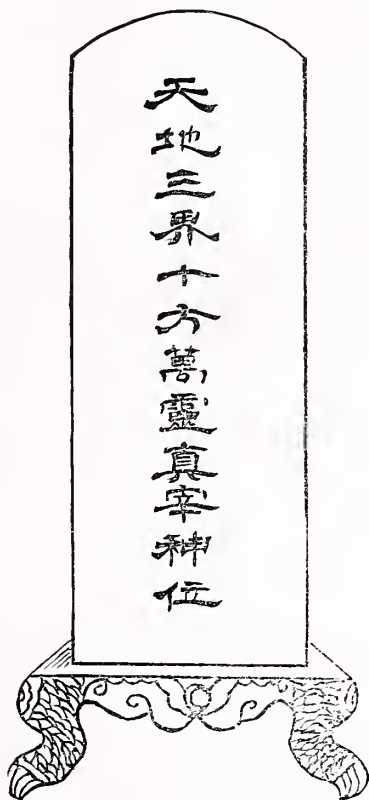 天地三界十方萬靈真宰神位